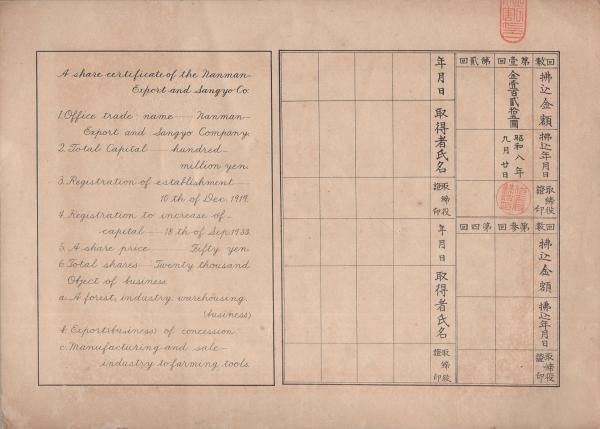 A share certificate of the Nanman-
Export and Sangyo Co.
1. Office trade name — Nanman-
Export and Sangyo Company.
2. Total Capital — hundred-
million yen.
3. Registration of establishment —
10 th of Dec. 1919.
4. Registration to increase of-
capetal — 18 th of Sep. 1933.
5. A share price — Fifty yen.
6. Total shares — Twenty thousand
Object of business
a. A forest, industry warehousing.
(business)
b. Export(business) of concession.
c. Manufacturing and sale-
industry to farming tools.
回數
第壹回
第貳回
拂込金額
金壹百貳拾五圓
拂込年月日
昭和八年
九月廿日
取締役
證印
回數
第參回
第四回
拂込金額
拂込年月日
取締役
證印
年月日
取得者氏名
取締役
證印
年月日
取得者氏名
取締役
證印